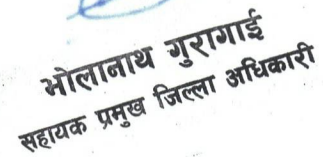 भोलानाथ गुरागाई
सहायक प्रमुख जिल्ला अधिकारी